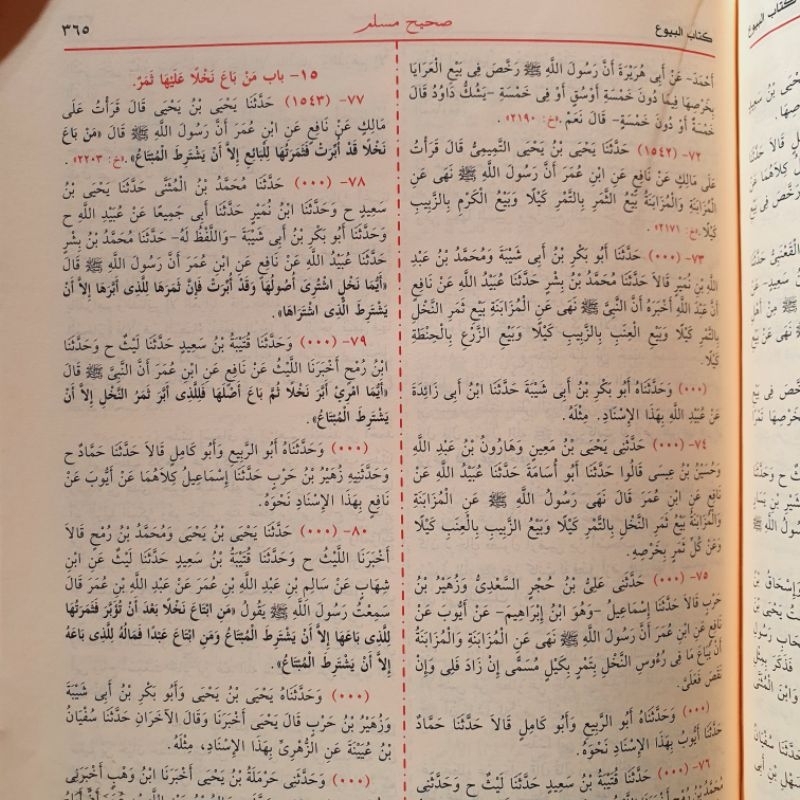 كتاب البيوع
صحيح مسلم
٣٦٥
أَحْمَدَ- عَنْ أَبِي هُرَيْرَةَ أَنَّ رَسُولَ اللَّهِ ﷺ رَخَّصَ فِي بَيْعِ الْعَرَايَا
بِخَرْصِهَا فِيمَا دُونَ خَمْسَةِ أَوْسُقٍ أَوْ فِي خَمْسَةٍ -يَشُكُّ دَاوُدُ قَالَ
خَمْسَةٌ أَوْ دُونَ خَمْسَةٍ- قَالَ نَعَمْ. «خ: ٢١٩٠».
٧٢- (١٥٤٢) حَدَّثَنَا يَحْيَى بْنُ يَحْيَى التَّمِيمِيُّ قَالَ قَرَأْتُ
عَلَى مَالِكٍ عَنْ نَافِعٍ عَنِ ابْنِ عُمَرَ أَنَّ رَسُولَ اللَّهِ ﷺ نَهَى عَنِ
الْمُزَابَنَةِ وَالْمُزَابَنَةُ بَيْعُ الثَّمَرِ بِالتَّمْرِ كَيْلًا وَبَيْعُ الْكَرْمِ بِالزَّبِيبِ
كَيْلًا. «خ: ٢١٧١».
٧٣- (٠٠٠) حَدَّثَنَا أَبُو بَكْرِ بْنُ أَبِي شَيْبَةَ وَمُحَمَّدُ بْنُ عَبْدِ
اللَّهِ بْنِ نُمَيْرٍ قَالَا حَدَّثَنَا مُحَمَّدُ بْنُ بِشْرٍ حَدَّثَنَا عُبَيْدُ اللَّهِ عَنْ نَافِعٍ
أَنَّ عَبْدَ اللَّهِ أَخْبَرَهُ أَنَّ النَّبِيَّ ﷺ نَهَى عَنِ الْمُزَابَنَةِ بَيْعِ ثَمَرِ النَّخْلِ
بِالتَّمْرِ كَيْلًا وَبَيْعِ الْعِنَبِ بِالزَّبِيبِ كَيْلًا وَبَيْعِ الزَّرْعِ بِالْحِنْطَةِ
كَيْلًا.
(٠٠٠) وَحَدَّثَنَاهُ أَبُو بَكْرِ بْنُ أَبِي شَيْبَةَ حَدَّثَنَا ابْنُ أَبِي زَائِدَةَ
عَنْ عُبَيْدِ اللَّهِ بِهَذَا الْإِسْنَادِ. مِثْلَهُ.
٧٤- (٠٠٠) حَدَّثَنِي يَحْيَى بْنُ مَعِينٍ وَهَارُونُ بْنُ عَبْدِ اللَّهِ
وَحُسَيْنُ بْنُ عِيسَى قَالُوا حَدَّثَنَا أَبُو أُسَامَةَ حَدَّثَنَا عُبَيْدُ اللَّهِ عَنْ
نَافِعٍ عَنِ ابْنِ عُمَرَ قَالَ نَهَى رَسُولُ اللَّهِ ﷺ عَنِ الْمُزَابَنَةِ
وَالْمُزَابَنَةُ بَيْعُ ثَمَرِ النَّخْلِ بِالتَّمْرِ كَيْلًا وَبَيْعُ الزَّبِيبِ بِالْعِنَبِ كَيْلًا
وَعَنْ كُلِّ ثَمَرٍ بِخَرْصِهِ.
٧٥- (٠٠٠) حَدَّثَنِي عَلِيُّ بْنُ حُجْرٍ السَّعْدِيُّ وَزُهَيْرُ بْنُ
حَرْبٍ قَالَا حَدَّثَنَا إِسْمَاعِيلُ -وَهُوَ ابْنُ إِبْرَاهِيمَ- عَنْ أَيُّوبَ عَنْ
نَافِعٍ عَنِ ابْنِ عُمَرَ أَنَّ رَسُولَ اللَّهِ ﷺ نَهَى عَنِ الْمُزَابَنَةِ وَالْمُزَابَنَةُ
أَنْ يُبَاعَ مَا فِي رُءُوسِ النَّخْلِ بِتَمْرٍ بِكَيْلٍ مُسَمًّى إِنْ زَادَ فَلِي وَإِنْ
نَقَصَ فَعَلَيَّ.
(٠٠٠) وَحَدَّثَنَاهُ أَبُو الرَّبِيعِ وَأَبُو كَامِلٍ قَالَا حَدَّثَنَا حَمَّادٌ
حَدَّثَنَا أَيُّوبُ بِهَذَا الْإِسْنَادِ نَحْوَهُ.
٧٦- (٠٠٠) حَدَّثَنَا قُتَيْبَةُ بْنُ سَعِيدٍ حَدَّثَنَا لَيْثٌ ح وَحَدَّثَنِي
١٥- باب مَنْ بَاعَ نَخْلًا عَلَيْهَا ثَمَرٌ.
٧٧- (١٥٤٣) حَدَّثَنَا يَحْيَى بْنُ يَحْيَى قَالَ قَرَأْتُ عَلَى
مَالِكٍ عَنْ نَافِعٍ عَنِ ابْنِ عُمَرَ أَنَّ رَسُولَ اللَّهِ ﷺ قَالَ «مَنْ بَاعَ
نَخْلًا قَدْ أُبِّرَتْ فَثَمَرَتُهَا لِلْبَائِعِ إِلَّا أَنْ يَشْتَرِطَ الْمُبْتَاعُ». «خ: ٢٢٠٣».
٧٨- (٠٠٠) حَدَّثَنَا مُحَمَّدُ بْنُ الْمُثَنَّى حَدَّثَنَا يَحْيَى بْنُ
سَعِيدٍ ح وَحَدَّثَنَا ابْنُ نُمَيْرٍ حَدَّثَنَا أَبِي جَمِيعًا عَنْ عُبَيْدِ اللَّهِ ح
وَحَدَّثَنَا أَبُو بَكْرِ بْنُ أَبِي شَيْبَةَ -وَاللَّفْظُ لَهُ- حَدَّثَنَا مُحَمَّدُ بْنُ بِشْرٍ
حَدَّثَنَا عُبَيْدُ اللَّهِ عَنْ نَافِعٍ عَنِ ابْنِ عُمَرَ أَنَّ رَسُولَ اللَّهِ ﷺ قَالَ
«أَيُّمَا نَخْلٍ اشْتُرِيَ أُصُولُهَا وَقَدْ أُبِّرَتْ فَإِنَّ ثَمَرَهَا لِلَّذِي أَبَّرَهَا إِلَّا أَنْ
يَشْتَرِطَ الَّذِي اشْتَرَاهَا».
٧٩- (٠٠٠) وَحَدَّثَنَا قُتَيْبَةُ بْنُ سَعِيدٍ حَدَّثَنَا لَيْثٌ ح وَحَدَّثَنَا
ابْنُ رُمْحٍ أَخْبَرَنَا اللَّيْثُ عَنْ نَافِعٍ عَنِ ابْنِ عُمَرَ أَنَّ النَّبِيَّ ﷺ قَالَ
«أَيُّمَا امْرِئٍ أَبَّرَ نَخْلًا ثُمَّ بَاعَ أَصْلَهَا فَلِلَّذِي أَبَّرَ ثَمَرُ النَّخْلِ إِلَّا أَنْ
يَشْتَرِطَ الْمُبْتَاعُ».
(٠٠٠) وَحَدَّثَنَاهُ أَبُو الرَّبِيعِ وَأَبُو كَامِلٍ قَالَا حَدَّثَنَا حَمَّادٌ ح
وَحَدَّثَنِيهِ زُهَيْرُ بْنُ حَرْبٍ حَدَّثَنَا إِسْمَاعِيلُ كِلَاهُمَا عَنْ أَيُّوبَ عَنْ
نَافِعٍ بِهَذَا الْإِسْنَادِ نَحْوَهُ.
٨٠- (٠٠٠) حَدَّثَنَا يَحْيَى بْنُ يَحْيَى وَمُحَمَّدُ بْنُ رُمْحٍ قَالَا
أَخْبَرَنَا اللَّيْثُ ح وَحَدَّثَنَا قُتَيْبَةُ بْنُ سَعِيدٍ حَدَّثَنَا لَيْثٌ عَنِ ابْنِ
شِهَابٍ عَنْ سَالِمِ بْنِ عَبْدِ اللَّهِ بْنِ عُمَرَ عَنْ عَبْدِ اللَّهِ بْنِ عُمَرَ قَالَ
سَمِعْتُ رَسُولَ اللَّهِ ﷺ يَقُولُ «مَنِ ابْتَاعَ نَخْلًا بَعْدَ أَنْ تُؤَبَّرَ فَثَمَرَتُهَا
لِلَّذِي بَاعَهَا إِلَّا أَنْ يَشْتَرِطَ الْمُبْتَاعُ وَمَنِ ابْتَاعَ عَبْدًا فَمَالُهُ لِلَّذِي بَاعَهُ
إِلَّا أَنْ يَشْتَرِطَ الْمُبْتَاعُ».
(٠٠٠) وَحَدَّثَنَاهُ يَحْيَى بْنُ يَحْيَى وَأَبُو بَكْرِ بْنُ أَبِي شَيْبَةَ
وَزُهَيْرُ بْنُ حَرْبٍ قَالَ يَحْيَى أَخْبَرَنَا وَقَالَ الْآخَرَانِ حَدَّثَنَا سُفْيَانُ
بْنُ عُيَيْنَةَ عَنِ الزُّهْرِيِّ بِهَذَا الْإِسْنَادِ، مِثْلَهُ.
(٠٠٠) وَحَدَّثَنِي حَرْمَلَةُ بْنُ يَحْيَى أَخْبَرَنَا ابْنُ وَهْبٍ أَخْبَرَنِي